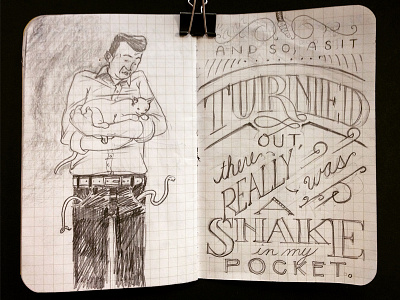 AND SO, AS IT
TURNED
OUT,
there
REALLY was
A
SNAKE
in my
POCKET.